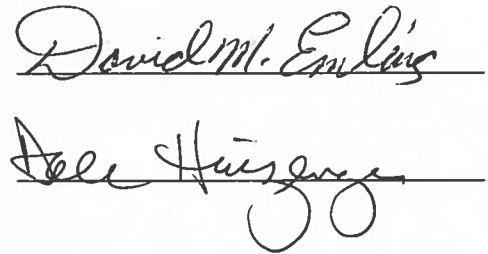 David M. Emling
Dale Huizenga